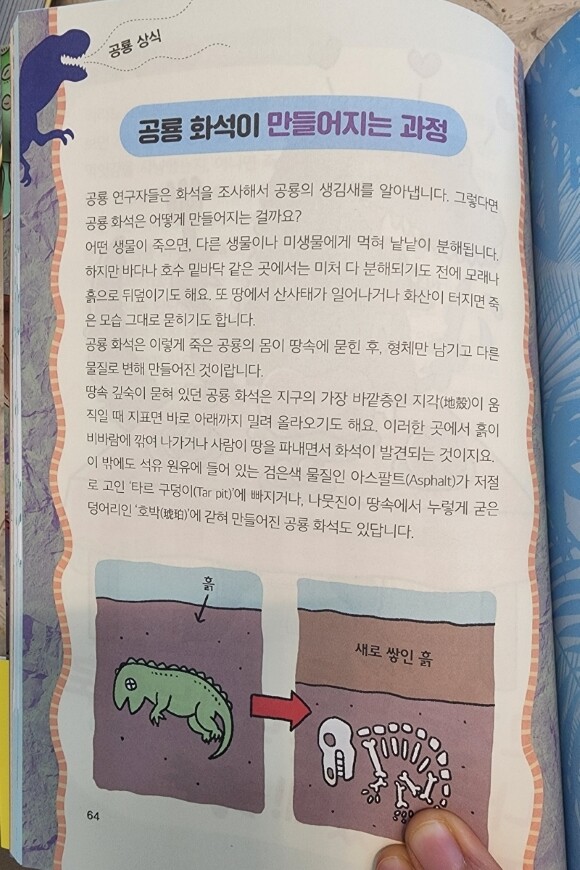 공룡 상식
공룡 화석이 만들어지는 과정
공룡 연구자들은 화석을 조사해서 공룡의 생김새를 알아냅니다. 그렇다면
공룡 화석은 어떻게 만들어지는 걸까요?
어떤 생물이 죽으면, 다른 생물이나 미생물에게 먹혀 낱낱이 분해됩니다.
하지만 바다나 호수 밑바닥 같은 곳에서는 미처 다 분해되기도 전에 모래나
흙으로 뒤덮이기도 해요. 또 땅에서 산사태가 일어나거나 화산이 터지면 죽
은 모습 그대로 묻히기도 합니다.
공룡 화석은 이렇게 죽은 공룡의 몸이 땅속에 묻힌 후, 형체만 남기고 다른
물질로 변해 만들어진 것이랍니다.
땅속 깊숙이 묻혀 있던 공룡 화석은 지구의 가장 바깥층인 지각(地殼)이 움
직일 때 지표면 바로 아래까지 밀려 올라오기도 해요. 이러한 곳에서 흙이
비바람에 깎여 나가거나 사람이 땅을 파내면서 화석이 발견되는 것이지요.
이 밖에도 석유 원유에 들어 있는 검은색 물질인 아스팔트(Asphalt)가 저절
로 고인 '타르 구덩이(Tar pit)'에 빠지거나, 나뭇진이 땅속에서 누렇게 굳은
덩어리인 '호박(琥珀)'에 갇혀 만들어진 공룡 화석도 있답니다.
흙
새로 쌓인 흙
64